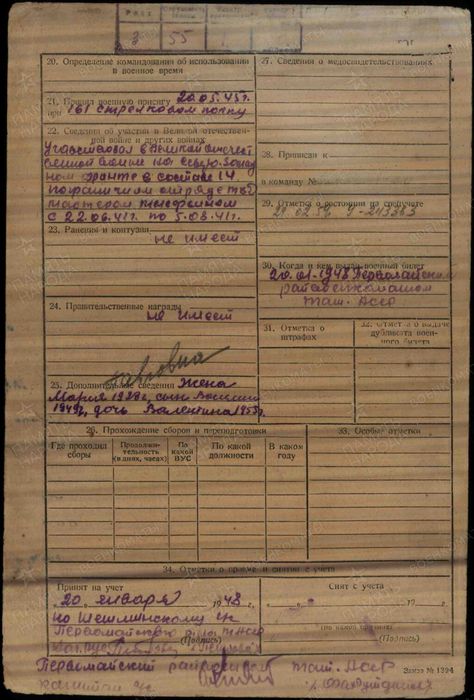 Рост
3
55
20. Определение командования об использовании
в военное время
21. Принял военную присягу 20.05.45г.
при 161 стрелковом полку
22. Сведения об участии в Великой отечествен-
ной войне и других войнах
Участвовал в Великой отечест
венной войне на северо-запад
ном фронте в составе 14
пограничном отряде
мастером телефоном
с 22.06.41г. по 5.08.41г.
23. Ранения и контузии
не имеет
24. Правительственные награды
не имеет
25. Дополнительные сведения жена
Мария 1928г, сын Василий
1949г, дочь Валентина 1953г.
26. Прохождение сборов и переподготовки
Где проходил сборы
Продолжительность (в днях, часах)
По какой ВУС
По какой должности
В каком году
27. Сведения о медосвидетельствованиях
28. Приписан к
в команду №
29. Отметка о состоянии на спецучете
30. Когда и кем выдан военный билет
20.01-1948 Первомайским
райвоенкоматом
Таш. АССР
31. Отметка о штрафах
32. Отметка о выдаче дубликата военного билета
33. Особые отметки
34. Отметки о приеме и снятии с учета
Принят на учет
20 января 1948
по Шешминскому
Первомайского
(Подпись)
Снят с учета
(по какой причине)
(Подпись)
Первомайский
Заказ № 1394